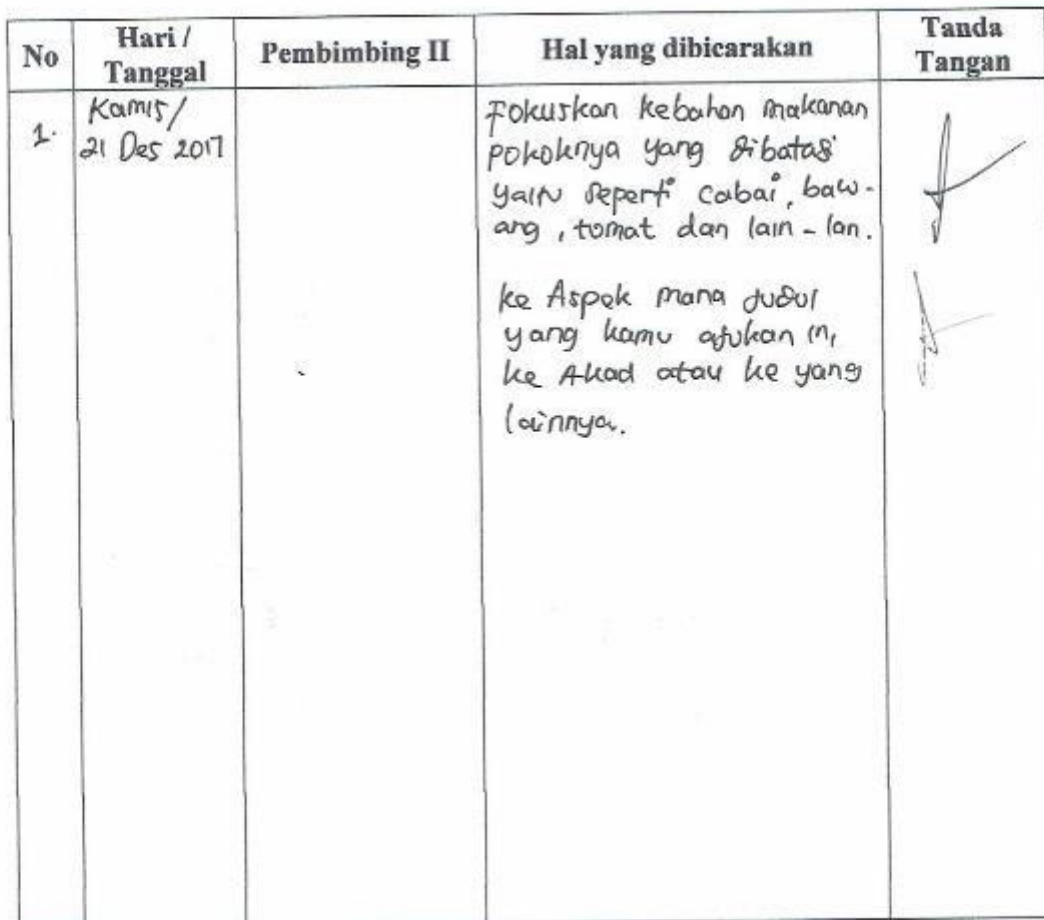 No
Hari /
Tanggal
Pembimbing II
Hal yang dibicarakan
Tanda
Tangan
1.
Kamis/
21 Des 2017
Fokuskan kebahan makanan
pokoknya yang dibatasi
yaitu seperti cabai, baw-
ang, tomat dan lain-lan.
ke Aspek mana judul
yang kamu ajukan ini,
ke Akad atau ke yang
lainnya.